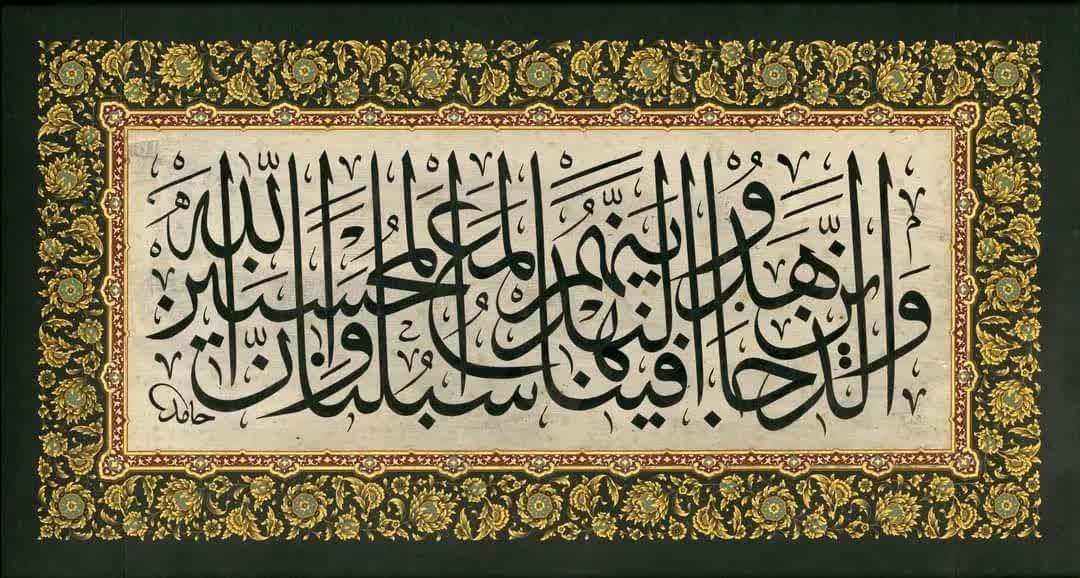 والذين جاهدوا فينا لنهدينهم سبلنا وان الله لمع المحسنين
حامد